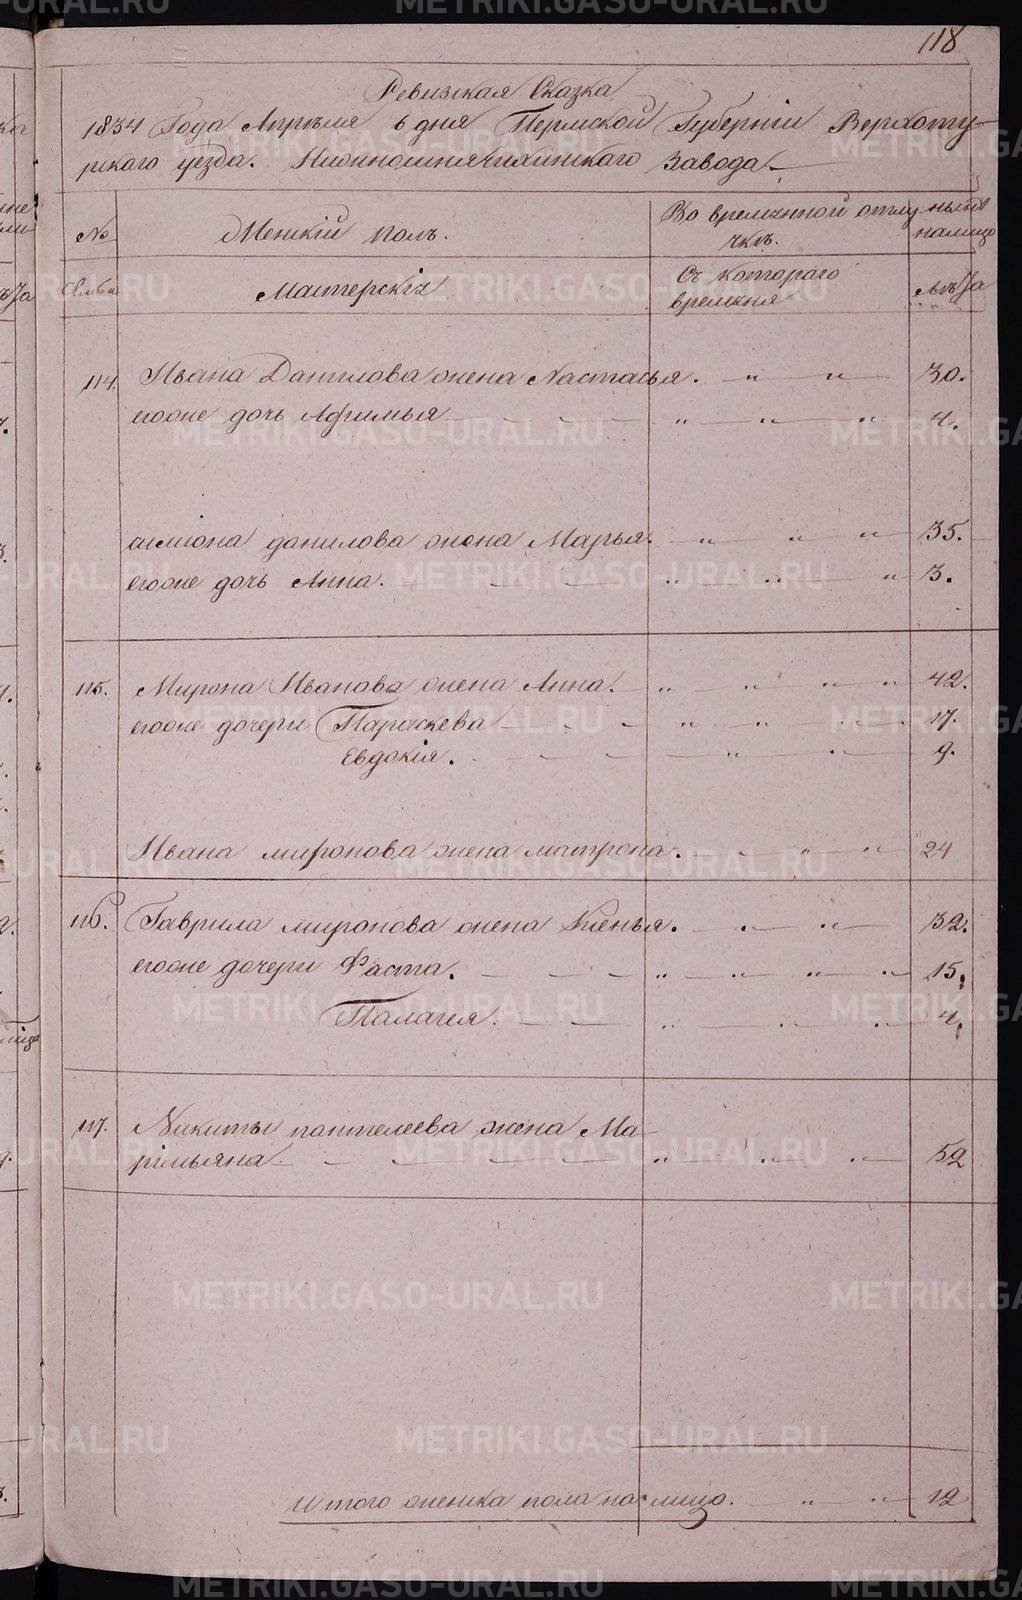 118
Ревизская Сказка
1834 Года Апреля 6 дня Пермской Губернiи Верхоту-
рского уезда. Нижнотагильского Завода
№
Женскiй полъ.
Во временной отлу-
чкѣ.
ныне
налицо
Семьи
Мастерскiх
Съ котораго
времяня
лѣта
114. Ивана Данилова жена Настасья. 30.
егоже дочь Афимья 4.
симiона данилова жена Марья. 35.
егоже дочь Анна. 3.
115. Мирона Иванова жена Анна. 42.
егоже дочери Параскева 17.
Евдокiя. 9.
Ивана миронова жена матрона. 24
116. Гаврила миронова жена Ксенья. 32.
егоже дочери Фаста. 15.
Палагея. 4.
117. Никиты пантелеева жена Ма-
рiмьяна 52
Итого женска пола на лицо. 12
METRIKI.GASO-URAL.RU